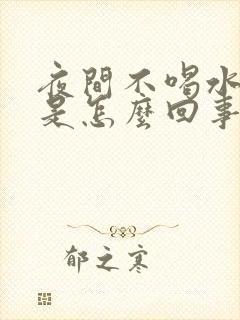 夜間不喝水
是怎麼回事
郁之寒